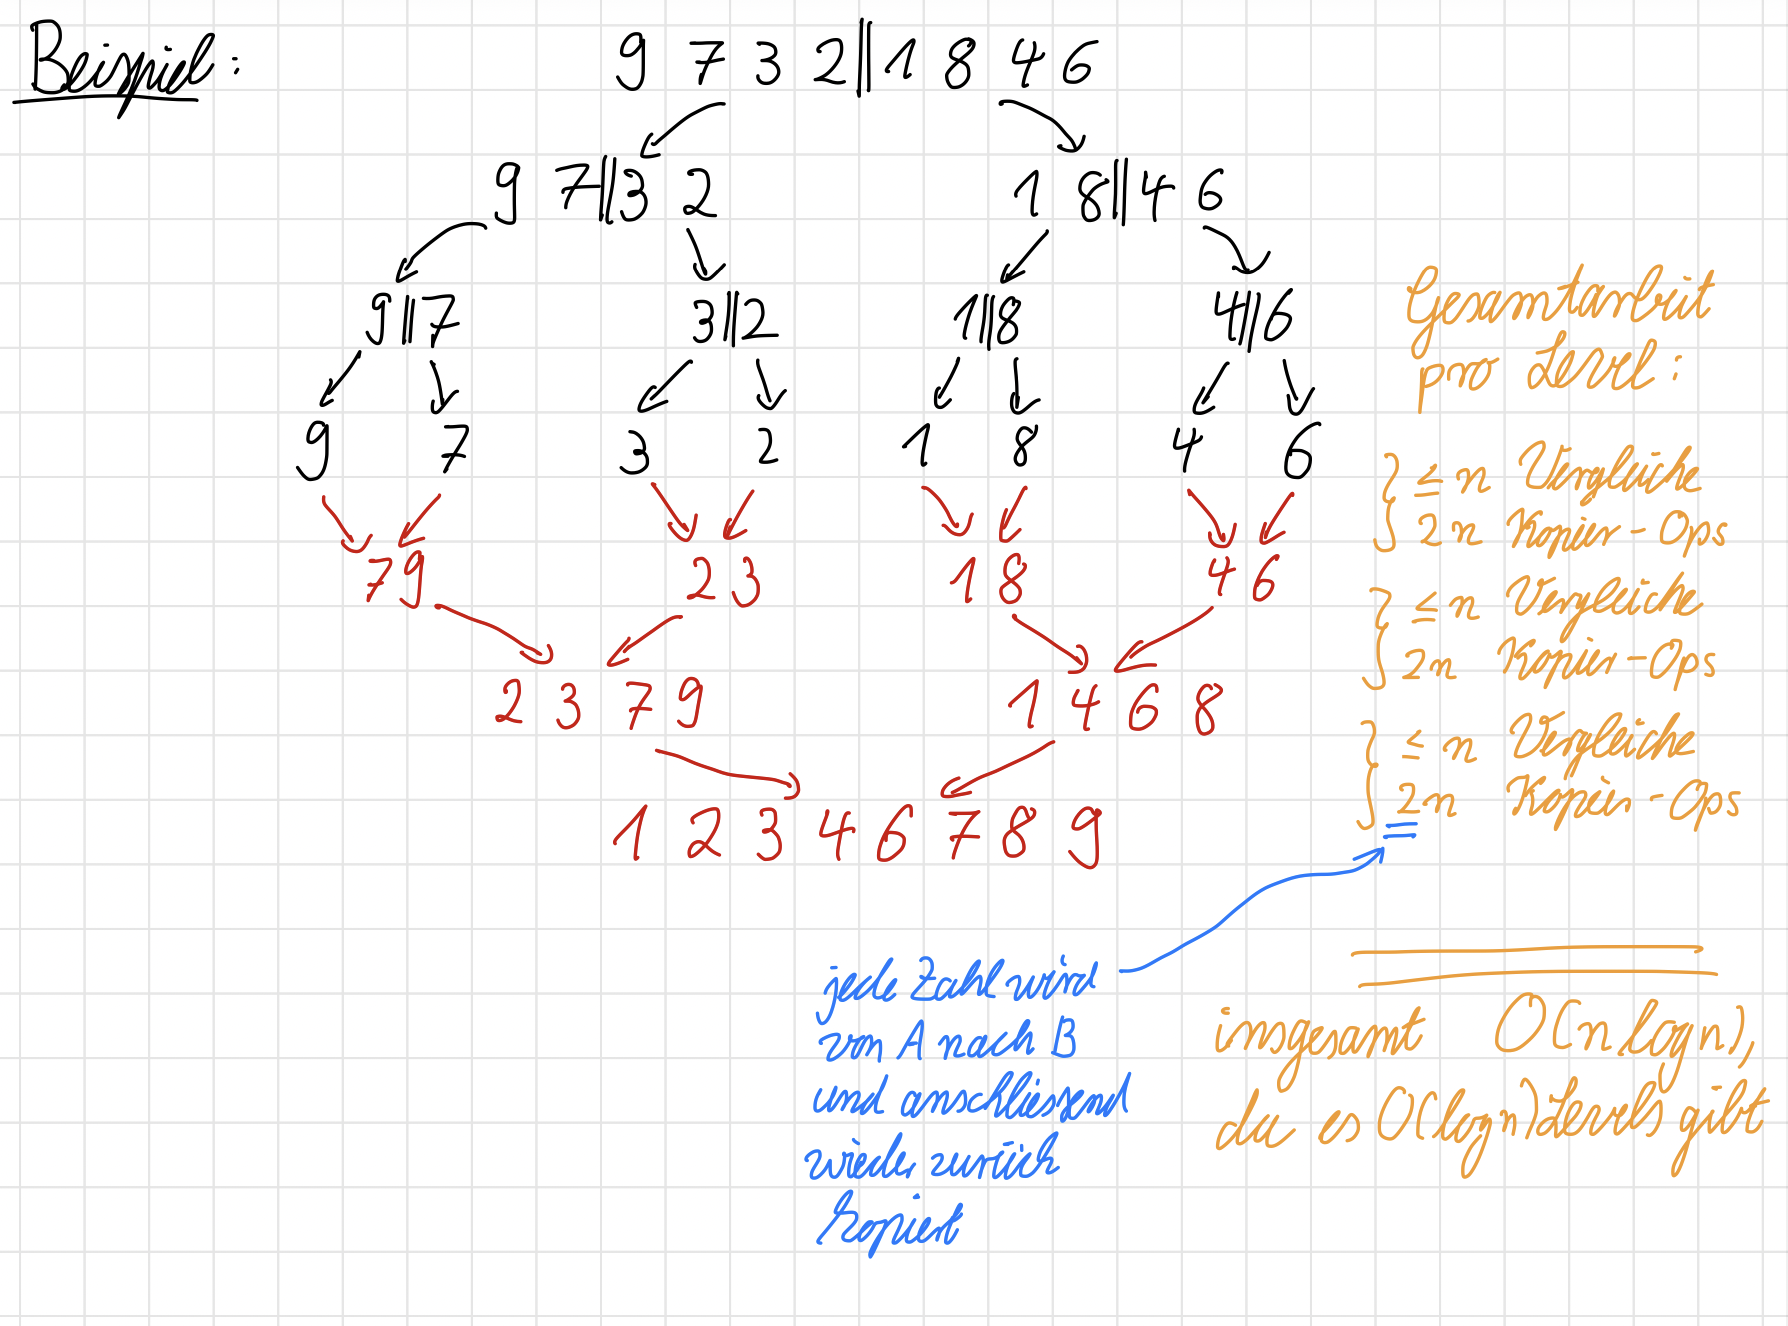 Beispiel: 9 7 3 2 || 1 8 4 6
9 7 || 3 2 1 8 || 4 6
9 || 7 3 || 2 1 || 8 4 || 6
9 7 3 2 1 8 4 6
7 9 2 3 1 8 4 6
2 3 7 9 1 4 6 8
1 2 3 4 6 7 8 9
Gesamtarbeit
pro Level:
} ≤ n Vergleiche
2n Kopier-Ops
} ≤ n Vergleiche
2n Kopier-Ops
} ≤ n Vergleiche
2n Kopier-Ops
jede Zahl wird
von A nach B
und anschliessend
wieder zurück
kopiert
insgesamt O(n log n),
da es O(log n) Levels gibt